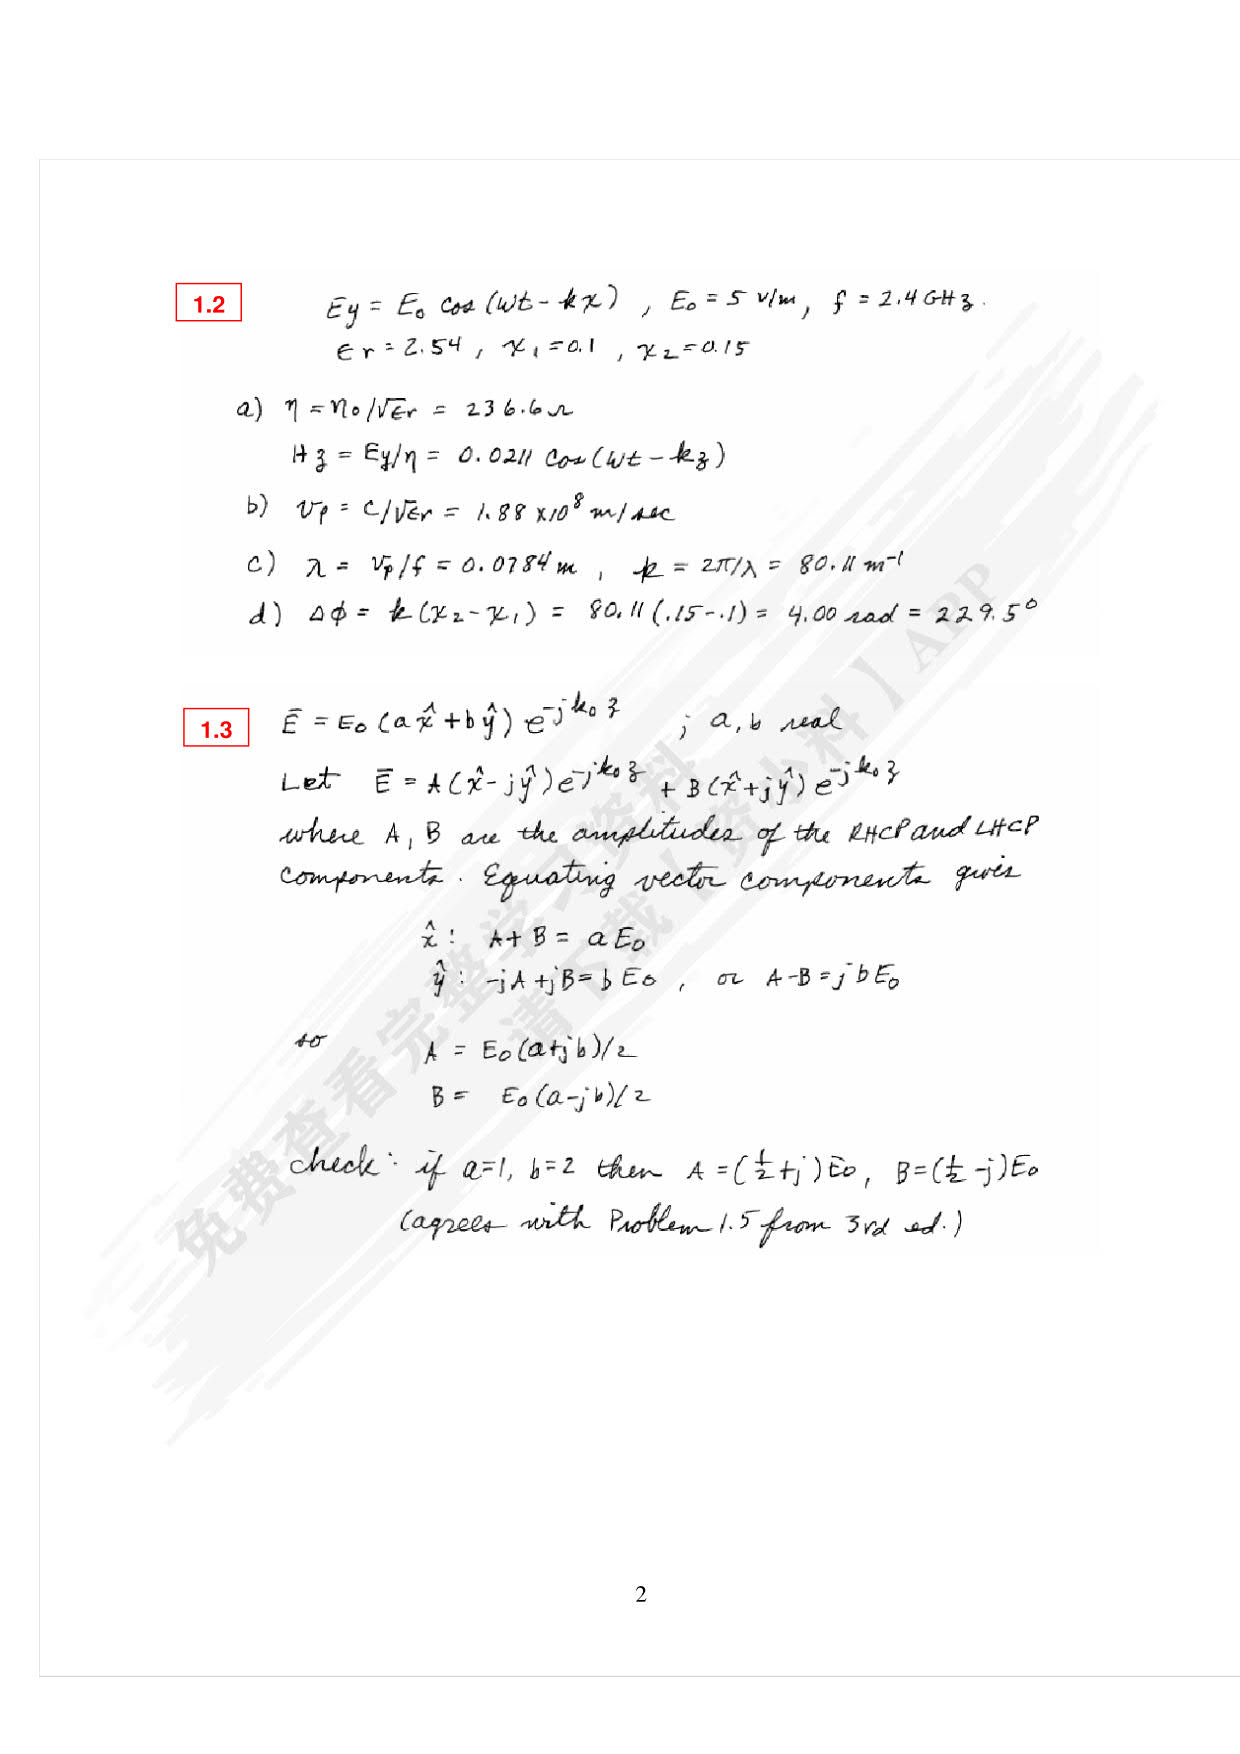 1.2 Ey = E₀ cos(ωt - kx) , E₀ = 5 V/m, f = 2.4 GHz.
εr = 2.54 , x₁ = 0.1 , x₂ = 0.15
a) η = η₀/√εr = 236.6 Ω
Hz = Ey/η = 0.0211 cos(ωt - kz)
b) vp = c/√εr = 1.88 x10⁸ m/sec
c) λ = vp/f = 0.0784 m , k = 2π/λ = 80.11 m⁻¹
d) Δφ = k(x₂-x₁) = 80.11(.15-.1) = 4.00 rad = 229.5°
1.3 Ē = E₀(a x̂ + b ŷ) e^-jk₀z ; a, b real
Let Ē = A(x̂ - jŷ)e^-jk₀z + B(x̂ + jŷ)e^-jk₀z
where A, B are the amplitudes of the RHCP and LHCP
components. Equating vector components gives
x̂: A + B = a E₀
ŷ: -jA + jB = b E₀ , or A - B = j b E₀
so A = E₀(a+jb)/2
B = E₀(a-jb)/2
check: if a=1, b=2 then A = (½ + j)E₀, B = (½ - j)E₀
(agrees with Problem 1.5 from 3rd ed.)
免费查看完整学习资料
请下载【资小料】APP
2